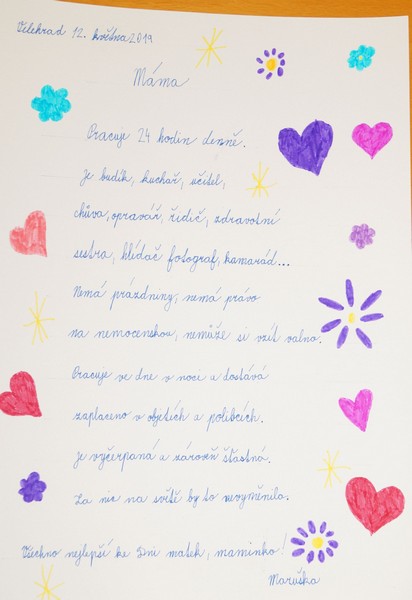 Velehrad 12. května 2019
Máma
Pracuje 24 hodin denně.
Je budík, kuchař, učitel,
chůva, opravář, řidič, zdravotní
sestra, hlídač fotograf, kamarád...
Nemá prázdniny, nemá právo
na nemocenskou, nemůže si vzít volno.
Pracuje ve dne v noci a dostává
zaplaceno v objetích a polibcích.
Je vyčerpaná a zároveň šťastná.
Za nic na světě by to nevyměnila.
Všechno nejlepší ke Dni matek, maminko!
Maruška